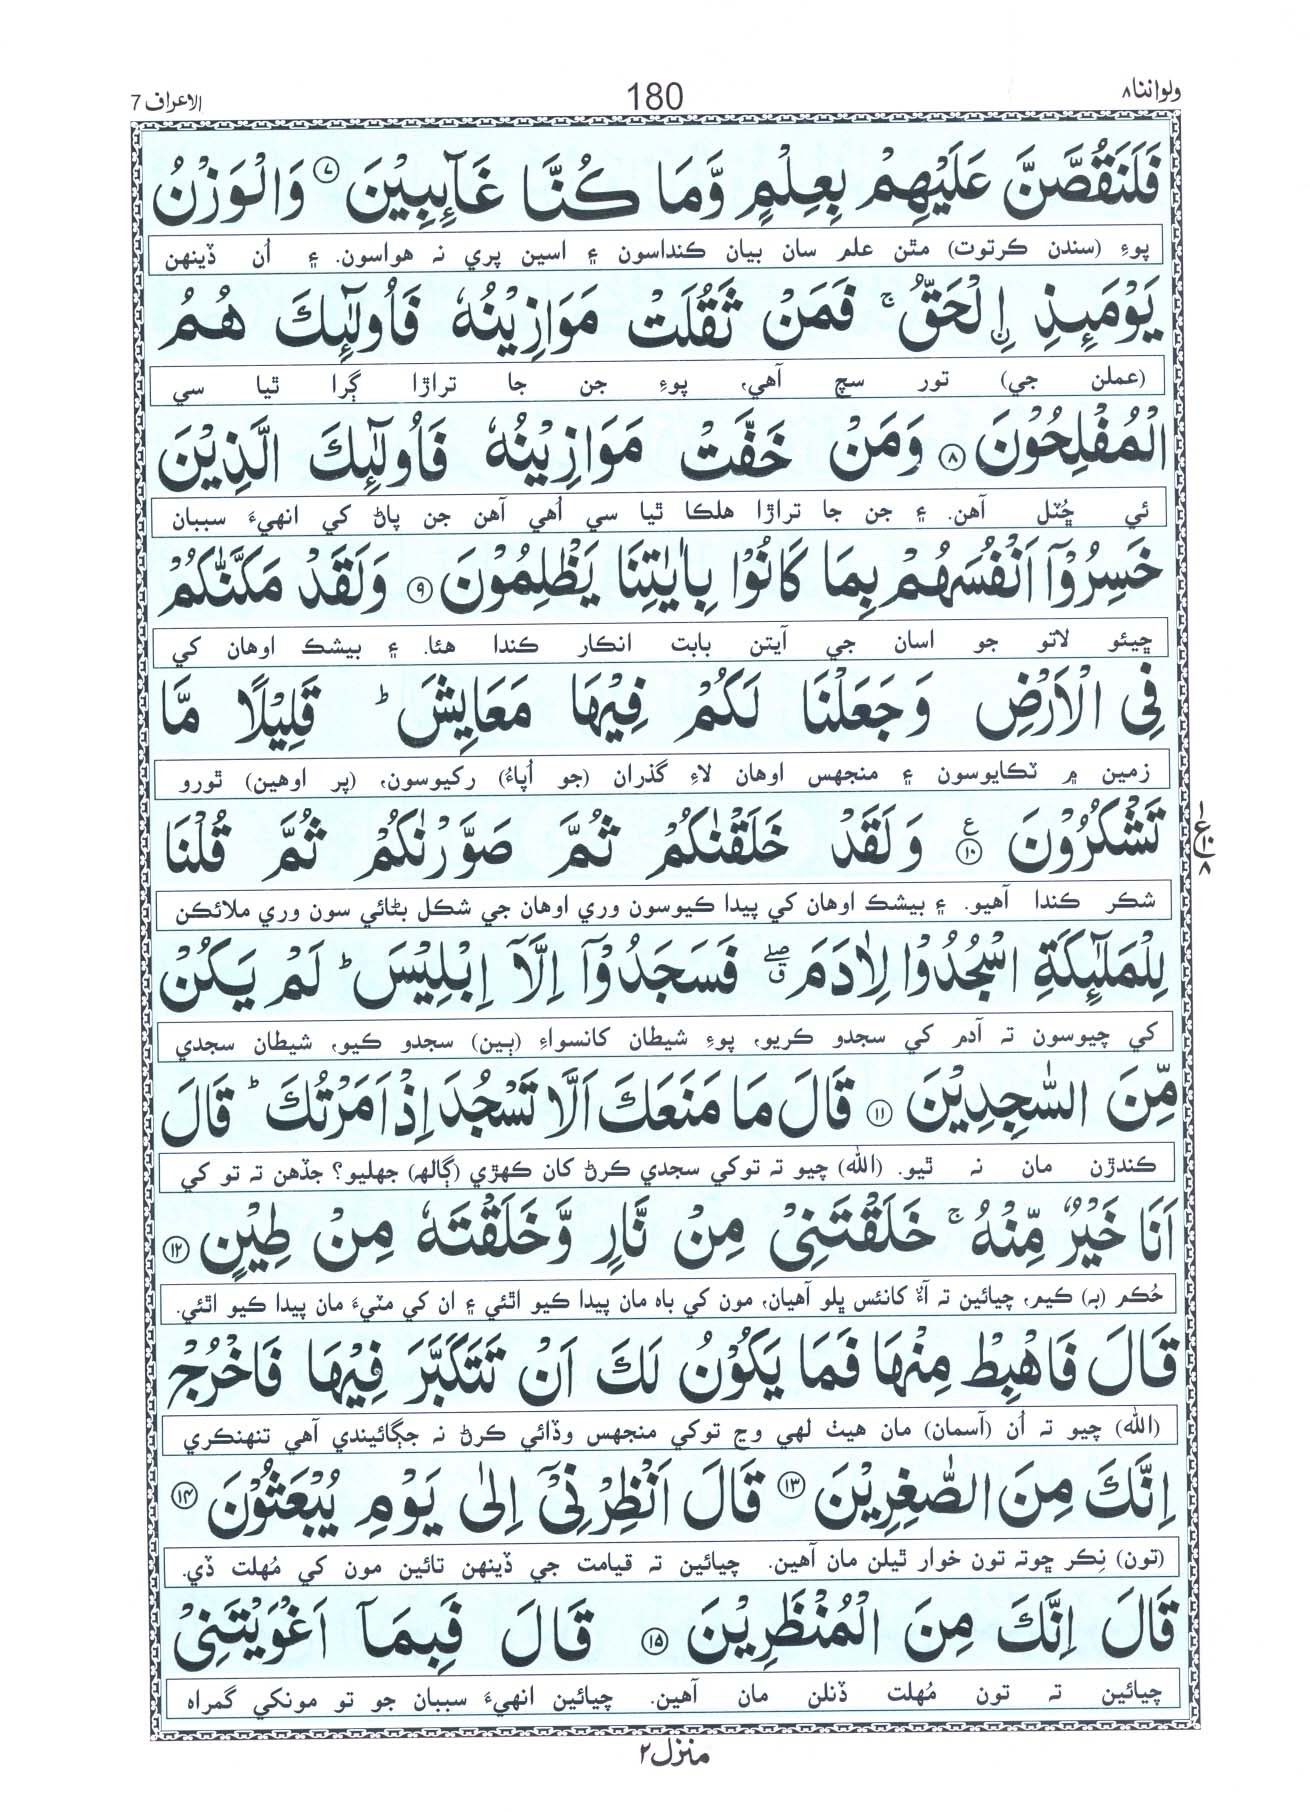 ولواننا ٨
180
الاعراف 7
فَلَنَقُصَّنَّ عَلَيْهِمْ بِعِلْمٍ وَّمَا كُنَّا غَآئِبِيْنَ ٧ وَالْوَزْنُ
پوءِ (سندن ڪرتوت) مٿن علم سان بيان ڪنداسون ۽ اسين پري نہ هواسون. ۽ اُن ڏينهن
يَوْمَئِذِ ۨالْحَقُّ ۚ فَمَنْ ثَقُلَتْ مَوَازِيْنُهٗ فَاُولٰٓئِكَ هُمُ
(عملن جي) تور سچ آهي، پوءِ جن جا تراڙا ڳرا ٿيا سي
الْمُفْلِحُوْنَ ٨ وَمَنْ خَفَّتْ مَوَازِيْنُهٗ فَاُولٰٓئِكَ الَّذِيْنَ
ئي ڇُٽل آهن. ۽ جن جا تراڙا هلڪا ٿيا سي اُهي آهن جن پاڻ کي انهيءَ سببان
خَسِرُوْٓا اَنْفُسَهُمْ بِمَا كَانُوْا بِاٰيٰتِنَا يَظْلِمُوْنَ ٩ وَلَقَدْ مَكَّنّٰكُمْ
ڇيئو لاتو جو اسان جي آيتن بابت انڪار ڪندا هئا. ۽ بيشڪ اوهان کي
فِى الْاَرْضِ وَجَعَلْنَا لَكُمْ فِيْهَا مَعَايِشَ ؕ قَلِيْلًا مَّا
زمين ۾ ٽڪايوسون ۽ منجهس اوهان لاءِ گذران (جو اُپاءُ) رکيوسون، (پر اوهين) ٿورو
تَشْكُرُوْنَ ١٠ ع وَلَقَدْ خَلَقْنٰكُمْ ثُمَّ صَوَّرْنٰكُمْ ثُمَّ قُلْنَا
١ ع ١٠ ٨
شڪر ڪندا آهيو. ۽ بيشڪ اوهان کي پيدا ڪيوسون وري اوهان جي شڪل بڻائي سون وري ملائڪن
لِلْمَلٰٓئِكَةِ اسْجُدُوْا لِاٰدَمَ ۖق فَسَجَدُوْٓا اِلَّآ اِبْلِيْسَ ؕ لَمْ يَكُنْ
کي چيوسون تہ آدم کي سجدو ڪريو، پوءِ شيطان کانسواءِ (ٻين) سجدو ڪيو، شيطان سجدي
مِّنَ السّٰجِدِيْنَ ١١ قَالَ مَا مَنَعَكَ اَلَّا تَسْجُدَ اِذْ اَمَرْتُكَ ؕ قَالَ
ڪندڙن مان نہ ٿيو. (الله) چيو تہ توکي سجدي ڪرڻ کان ڪهڙي (ڳالهہ) جهليو؟ جڏهن تہ تو کي
اَنَا خَيْرٌ مِّنْهُ ۚ خَلَقْتَنِىْ مِنْ نَّارٍ وَّخَلَقْتَهٗ مِنْ طِيْنٍ ١٢
حُڪم (بہ) ڪيم، چيائين تہ آءٌ کانئس ڀلو آهيان، مون کي باہ مان پيدا ڪيو اٿئي ۽ ان کي مٽيءَ مان پيدا ڪيو اٿئي.
قَالَ فَاهْبِطْ مِنْهَا فَمَا يَكُوْنُ لَكَ اَنْ تَتَكَبَّرَ فِيْهَا فَاخْرُجْ
(الله) چيو تہ اُن (آسمان) مان هيٺ لهي وڃ توکي منجهس وڏائي ڪرڻ نہ جڳائيندي آهي تنهنڪري
اِنَّكَ مِنَ الصّٰغِرِيْنَ ١٣ قَالَ اَنْظِرْنِىْٓ اِلٰى يَوْمِ يُبْعَثُوْنَ ١٤
(تون) نِڪر ڇوتہ تون خوار ٿيلن مان آهين. چيائين تہ قيامت جي ڏينهن تائين مون کي مُهلت ڏي.
قَالَ اِنَّكَ مِنَ الْمُنْظَرِيْنَ ١٥ قَالَ فَبِمَآ اَغْوَيْتَنِىْ
چيائين تہ تون مُهلت ڏنلن مان آهين. چيائين انهيءَ سببان جو تو مونکي گمراہ
منزل ٢